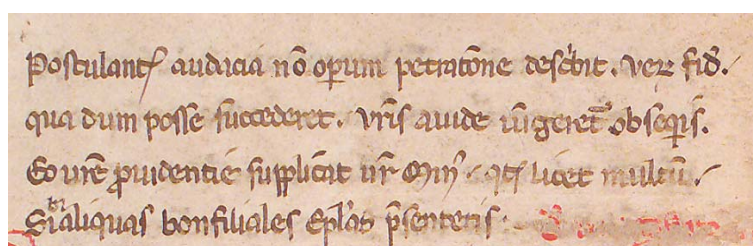 Postulantꝭ audacia nō oꝑum petratōne desc̄bit. veꝝ fid̄./
qua dum posse succederet./ vr̄is auide iūgeret᷑ obseq̄is.
Eo vr̄e ꝓuidentie suppl̄icat vr̄ licet multū./
Si aliquas bonfiliales Ep̄las p̄sentetis.